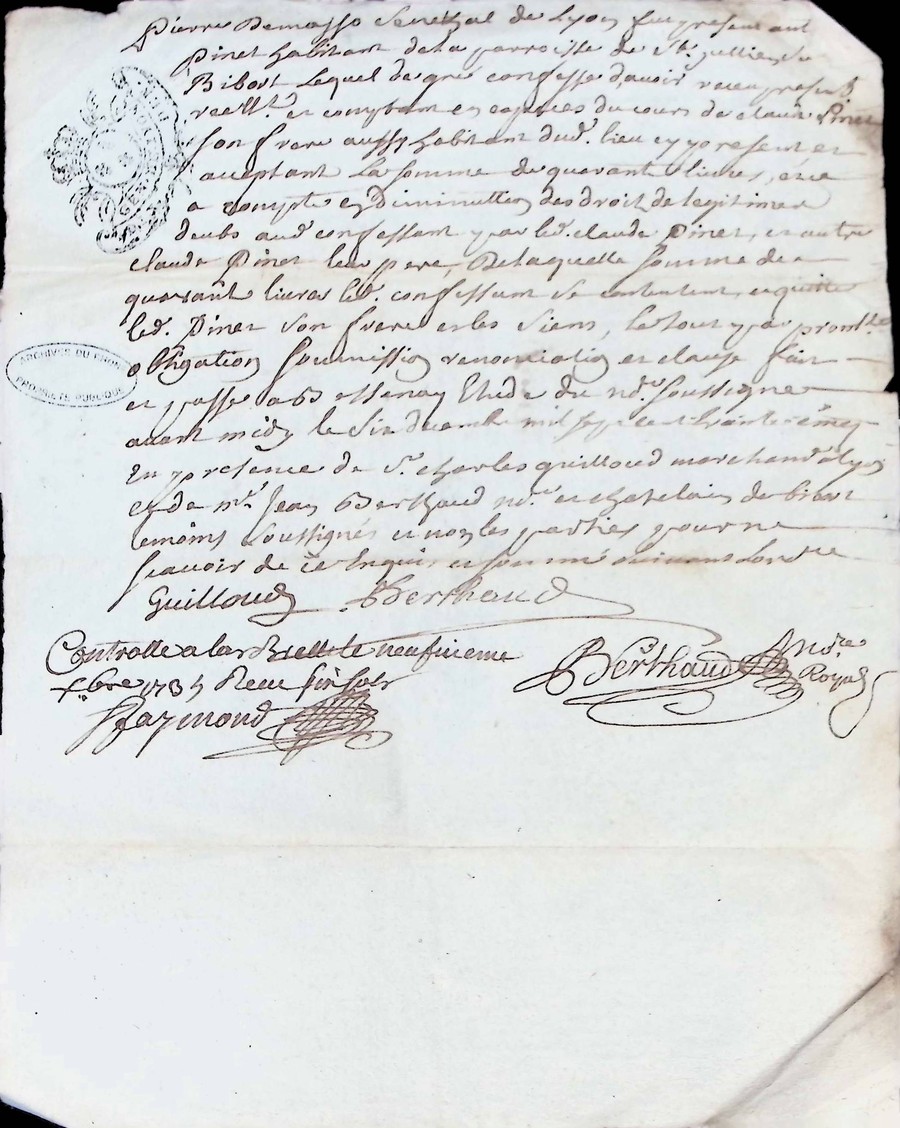 Pierre Demasso Senechal de Lyon fut present ant
Pinet habitant de la parroisse de St. Jullien Su
Bibost Lequel de gré confesse d'avoir receu present
reellt. et comptant en especes du cours de claude Pinet
son frere aussy habitant dud. lieu cy present et
aceptant La somme de quarante livres, et ce
a compte et diminution des droit de legitimes
deubs aud. confessant par led. claude Pinet, et autre
claude Pinet leur pere, De laquelle somme de
quarante livres led. confessant se contentent, et quitte
led. Pinet son frere et les siens, le tout par promt.
obligation soumission renonciation et clause fait
et passé a Bessenay Etude du nore. soussigné
avant midy le six decembre mil sept cent trente cinq
En presence de Sr. charles guilloud marchand a lyon
et de Mr. Jean Berthaud nore. et chatelain de bibost
temoins soussignés et non les parties pour ne
scavoir de ce Enquis et sommé suivant Lordce
Guilloud Berthaud
Controlle a la Bresle le neufvieme
xbre 1735 Receu six sols
Raymond
Berthaud Nore.
Royal
ARCHIVES DU RHONE
PROPRIETE PUBLIQUE